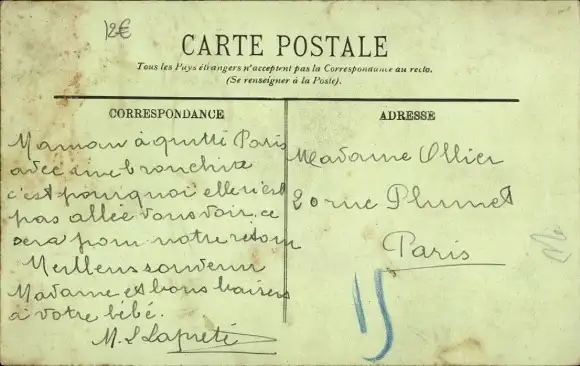 12€
CARTE POSTALE
Tous les Pays étrangers n'acceptent pas la Correspondance au recto.
(Se renseigner à la Poste).
CORRESPONDANCE
Maman à quitté Paris
avec une bronchite
c'est pourquoi elle n'est
pas allée vous voir, ce
sera pour notre retour
Meilleurs souvenir
Madame et bons baisers
à votre bébé.
M. L Lapreté
ADRESSE
Madame Ollier
20 rue Plumet
Paris
15